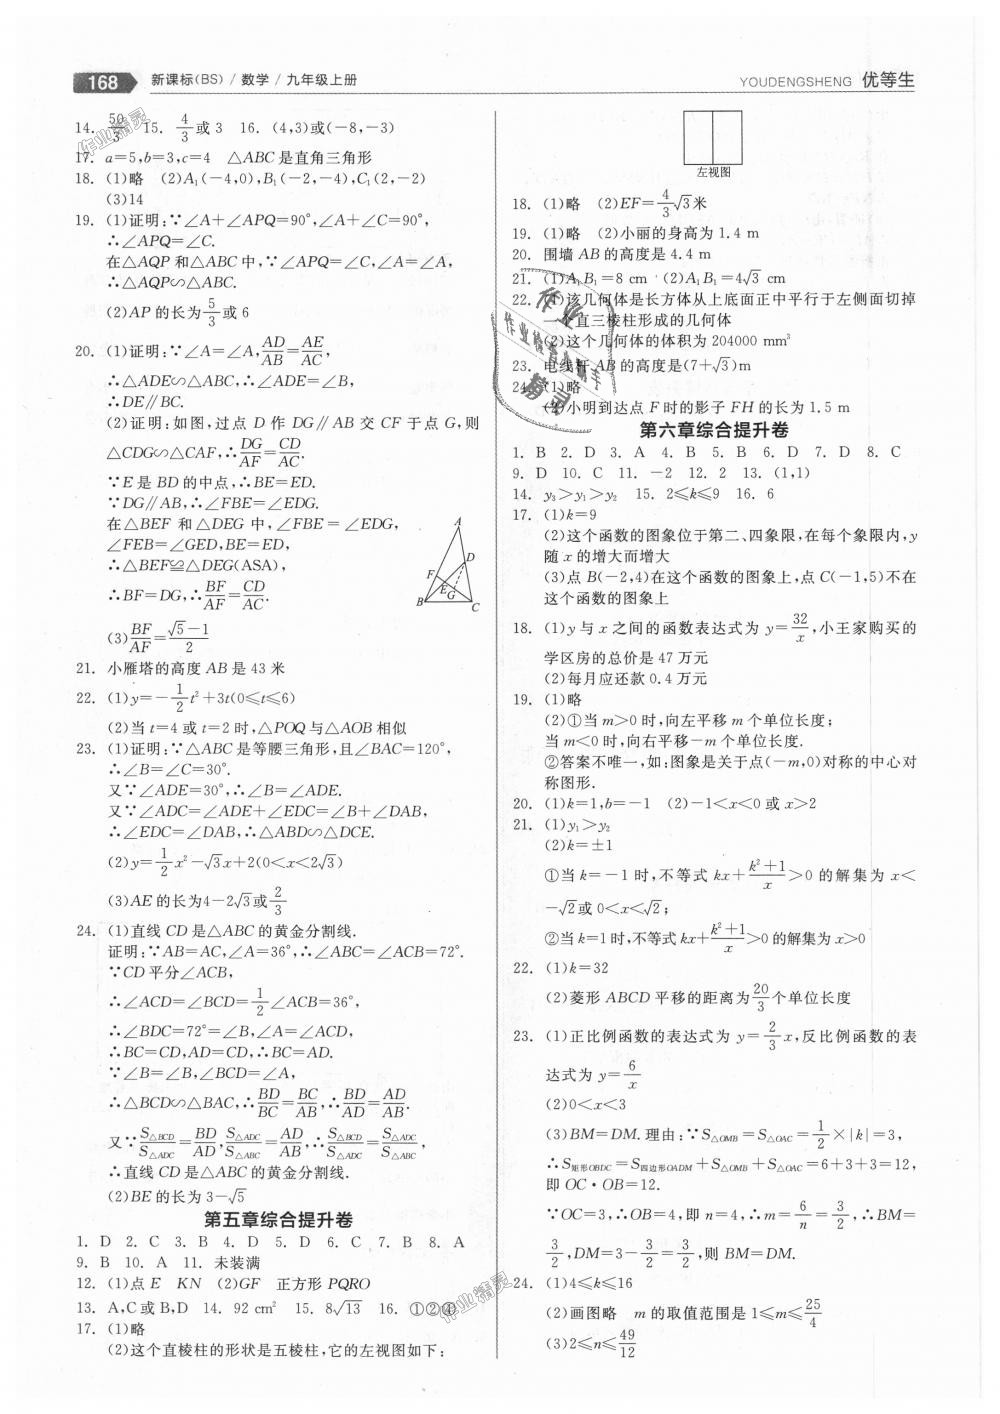 168 新课标(BS) / 数学 / 九年级上册
YOUDENGSHENG 优等生
14. 50/3 15. 4/3或3 16. (4,3)或(-8,-3)
17. a=5,b=3,c=4 △ABC是直角三角形
18. (1)略 (2)A₁(-4,0),B₁(-2,-4),C₁(2,-2)
(3)14
19. (1)证明:∵∠A+∠APQ=90°,∠A+∠C=90°,
∴∠APQ=∠C.
在△AQP和△ABC中,∵∠APQ=∠C,∠A=∠A,
∴△AQP∽△ABC.
(2)AP的长为5/3或6
20. (1)证明:∵∠A=∠A,AD/AB=AE/AC,
∴△ADE∽△ABC,∴∠ADE=∠B,
∴DE∥BC.
(2)证明:如图,过点D作DG∥AB交CF于点G,则
△CDG∽△CAF,∴DG/AF=CD/AC.
∵E是BD的中点,∴BE=ED.
∵DG∥AB,∴∠FBE=∠EDG.
在△BEF和△DEG中,∠FBE=∠EDG,
∠FEB=∠GED,BE=ED,
∴△BEF≌△DEG(ASA),
∴BF=DG,∴BF/AF=CD/AC.
A
D
F
E
G
B
C
(3)BF/AF=(√5-1)/2
21. 小雁塔的高度AB是43米
22. (1)y=-1/2t²+3t(0≤t≤6)
(2)当t=4或t=2时,△POQ与△AOB相似
23. (1)证明:∵△ABC是等腰三角形,且∠BAC=120°,
∴∠B=∠C=30°.
又∵∠ADE=30°,∴∠B=∠ADE.
又∵∠ADC=∠ADE+∠EDC=∠B+∠DAB,
∴∠EDC=∠DAB,∴△ABD∽△DCE.
(2)y=1/2x²-√3x+2(0<x<2√3)
(3)AE的长为4-2√3或2/3
24. (1)直线CD是△ABC的黄金分割线.
证明:∵AB=AC,∠A=36°,∴∠ABC=∠ACB=72°.
∵CD平分∠ACB,
∴∠ACD=∠BCD=1/2∠ACB=36°,
∴∠BDC=72°=∠B,∠A=∠ACD,
∴BC=CD,AD=CD,∴BC=AD.
∵∠B=∠B,∠BCD=∠A,
∴△BCD∽△BAC,∴BD/BC=BC/AB,∴BD/AD=AD/AB.
又∵S△BCD/S△ADC=BD/AD,S△ADC/S△ABC=AD/AB,∴S△BCD/S△ADC=S△ADC/S△ABC,
∴直线CD是△ABC的黄金分割线.
(2)BE的长为3-√5
第五章综合提升卷
1. D 2. C 3. B 4. D 5. D 6. C 7. B 8. A
9. B 10. A 11. 未装满
12. (1)点E KN (2)GF 正方形PQRO
13. A,C或B,D 14. 92 cm² 15. 8√13 16. ①②④
17. (1)略
(2)这个直棱柱的形状是五棱柱,它的左视图如下:
左视图
18. (1)略 (2)EF=4/3√3米
19. (1)略 (2)小丽的身高为1.4 m
20. 围墙AB的高度是4.4 m
21. (1)A₁B₁=8 cm (2)A₁B₁=4√3 cm
22. (1)该几何体是长方体从上底面正中平行于左侧面切掉
一个直三棱柱形成的几何体
(2)这个几何体的体积为204000 mm³
23. 电线杆AB的高度是(7+√3)m
24. (1)略
(2)小明到达点F时的影子FH的长为1.5 m
第六章综合提升卷
1. B 2. D 3. A 4. B 5. B 6. D 7. D 8. C
9. D 10. C 11. -2 12. 2 13. (1,1)
14. y₃>y₁>y₂ 15. 2≤k≤9 16. 6
17. (1)k=9
(2)这个函数的图象位于第二、四象限,在每个象限内,y
随x的增大而增大
(3)点B(-2,4)在这个函数的图象上,点C(-1,5)不在
这个函数的图象上
18. (1)y与x之间的函数表达式为y=32/x,小王家购买的
学区房的总价是47万元
(2)每月应还款0.4万元
19. (1)略
(2)①当m>0时,向左平移m个单位长度;
当m<0时,向右平移-m个单位长度.
②答案不唯一,如:图象是关于点(-m,0)对称的中心对
称图形.
20. (1)k=1,b=-1 (2)-1<x<0或x>2
21. (1)y₁>y₂
(2)k=±1
①当k=-1时,不等式kx+(k²+1)/x>0的解集为x<
-√2或0<x<√2;
②当k=1时,不等式kx+(k²+1)/x>0的解集为x>0
22. (1)k=32
(2)菱形ABCD平移的距离为20/3个单位长度
23. (1)正比例函数的表达式为y=2/3x,反比例函数的表
达式为y=6/x
(2)0<x<3
(3)BM=DM.理由:∵S△OMB=S△OAC=1/2×|k|=3,
∴S矩形OBDC=S四边形OADM+S△OMB+S△OAC=6+3+3=12,
即OC·OB=12.
∵OC=3,∴OB=4,即n=4,∴m=6/n=3/2,∴BM=
3/2,DM=3-3/2=3/2,则BM=DM.
24. (1)4≤k≤16
(2)画图略 m的取值范围是1≤m≤25/4
(3)2≤n≤49/12